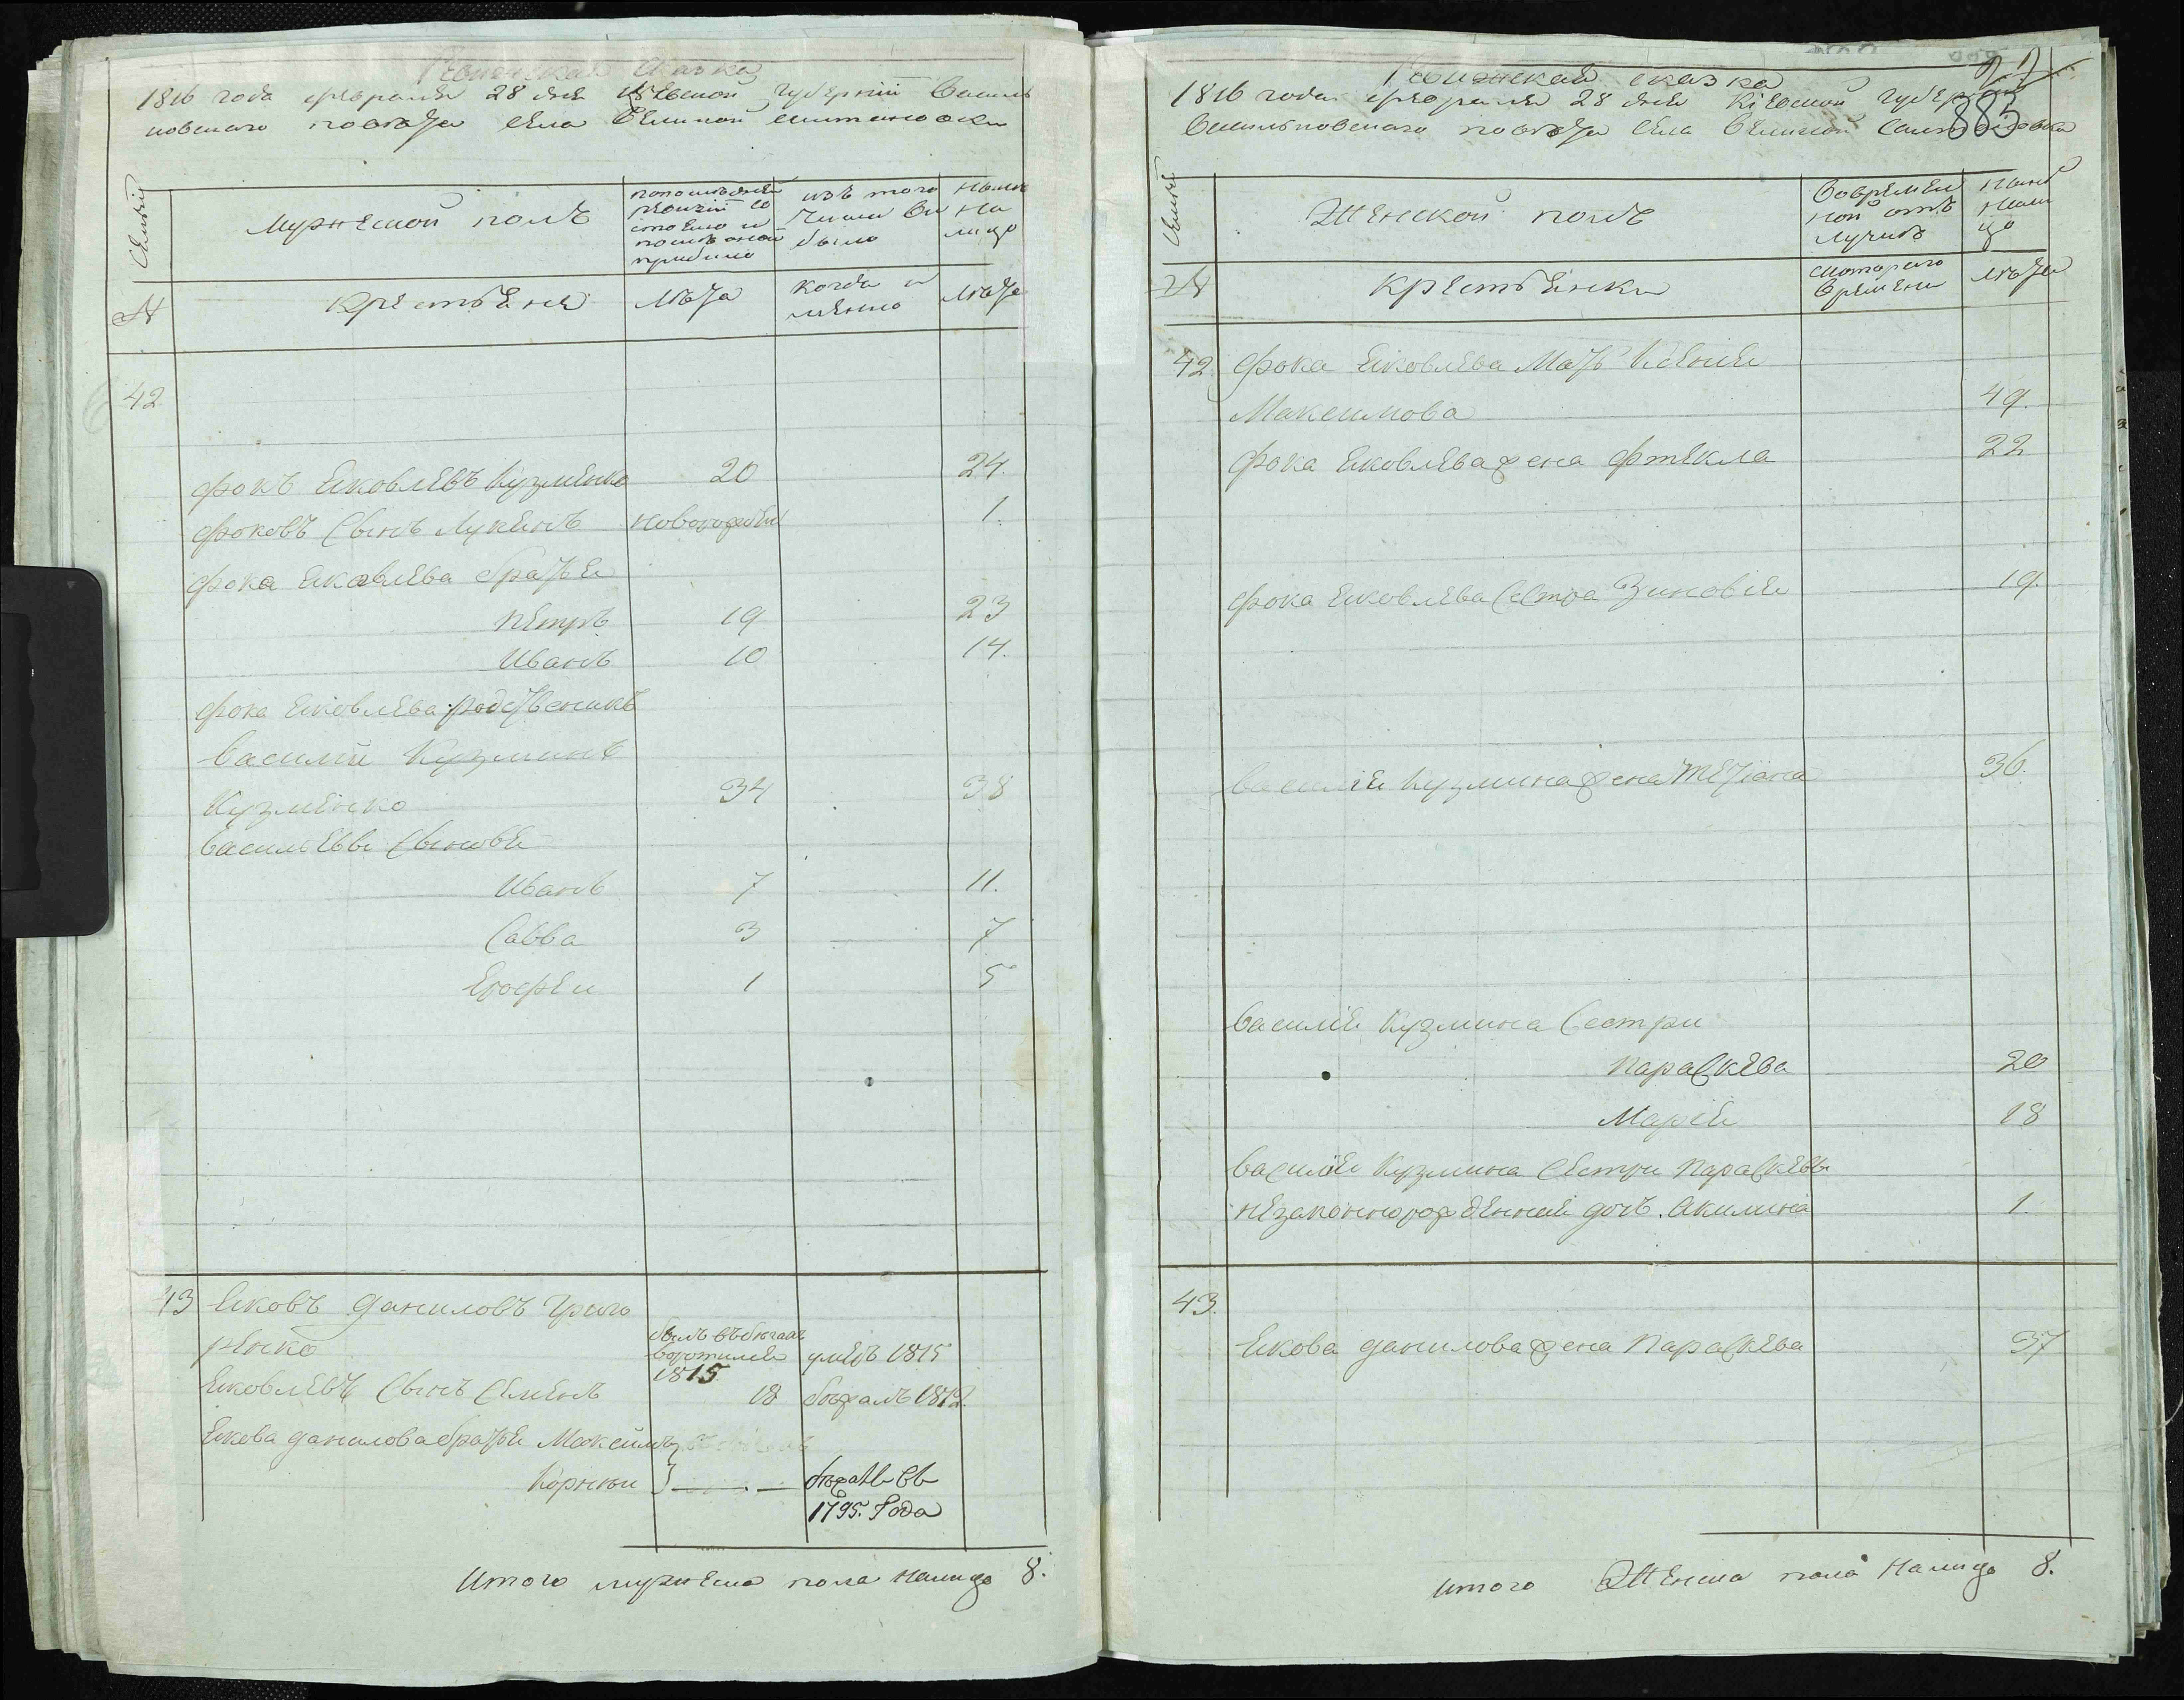 Ревижская сказка
1816 года февраля 28 дня Кіевской Губерніи Василь
ковского повѣта села Великой Снитинки
Семьи
Мужеской полъ
по последней
ревизіи со
стояло и
после оной
прибыло
изъ того
числа вы
было
Ныне
на
лицо
№
Крестьяня
лѣта
когда и
мѣнно
лѣта
42
Фокъ Яковлевъ Кузменко 20 24.
Фоковъ Сынъ Лукянъ новорожден 1.
Фока Яковлева братья
Петръ 19 23
Иванъ 10 14.
Фока Яковлева родственикъ
Василий Кузминъ
Кузменко 34 38
Васильевы Сыновья
Иванъ 7 11.
Савва 3 7
Ерофеи 1 5
43 Яковъ Даниловъ Григо
ренко былъ въ бегахъ воротился 1815 умеръ 1815
Яковлевъ Сынъ Семенъ 18 бѣжалъ 1812.
Якова Данилова братья Максимъ
Корнеи бѣжалъ въ
1795. Года
Итого мужеска пола налицо 8.
Ревижская сказка
883
1816 года февраля 28 дня Кіевской Губерніи
Васильковского повѣта села Великой
Семьи
Женской полъ
Во времен
ной отъ
лучкѣ
Ныне
нали
цо
№
Крестьянки
с которого
времени
лѣта
42 Фока Яковлева Мать Ксенія
Максимова 49.
Фока Яковлева жена Фтекла 22
Фока Яковлева Сестра Зиновія 19.
Василія Кузмина жена Тетіана 36.
Василія Кузмина Сестри
Параскева 20
Марія 18
Василія Кузмина Сестри Параскевы
незаконнорожденная дочь Акилина 1.
43.
Якова Данилова жена Параскева 37
Итого Женска пола налицо 8.